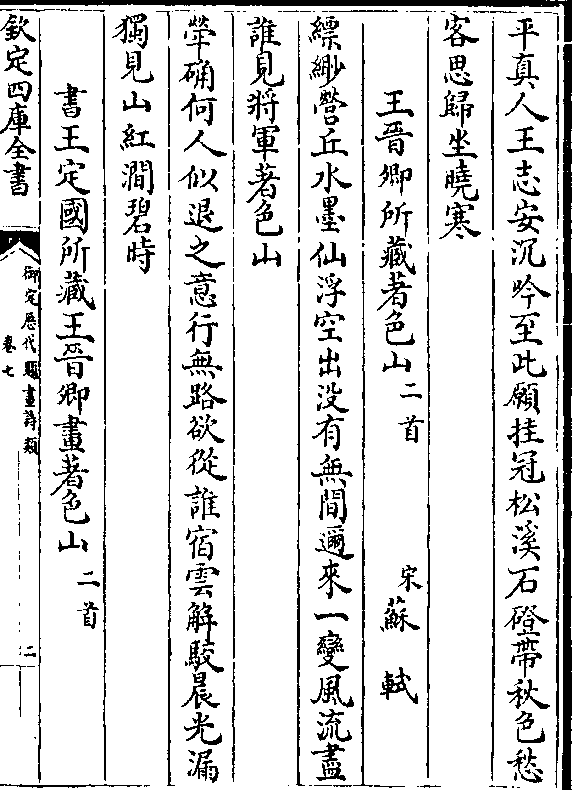 平真人王志安沉吟至此願挂冠松溪石磴帶秋色愁
客思歸坐曉寒
王晉卿所藏著色山二首 宋蘇軾
縹緲營丘水墨仙浮空出没有無間邇來一變風流盡
誰見將軍著色山
犖确何人似退之意行無路欲從誰宿雲解駁晨光漏
獨見山紅澗碧時
書王定國所藏王晉卿畫著色山二首
欽定四庫全書
御定歷代題畫詩類
卷七
二